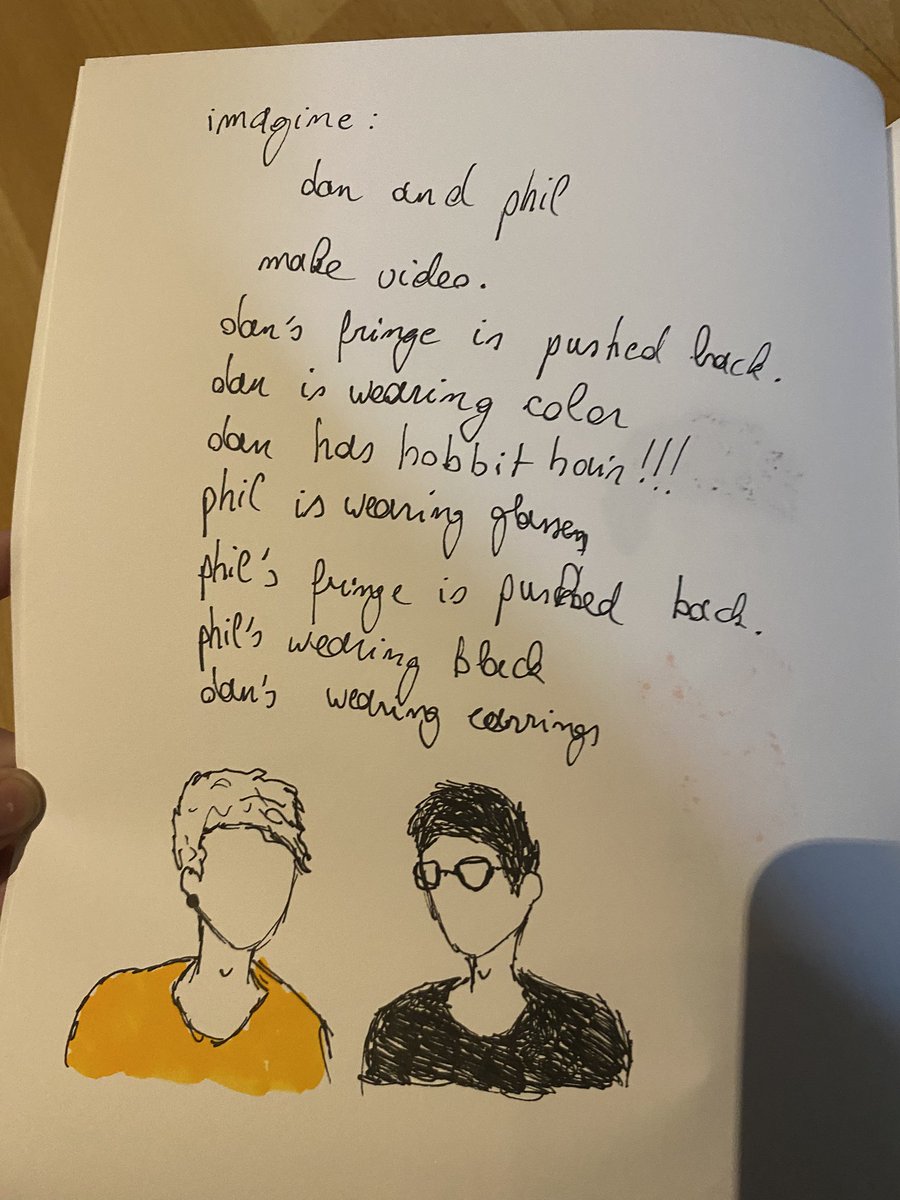 imagine:
dan and phil
make video.
dan's fringe is pushed back.
dan is wearing color
dan has hobbit hair!!!
phil is wearing glasses
phil's fringe is pushed back.
phil's wearing black
dan's wearing earrings